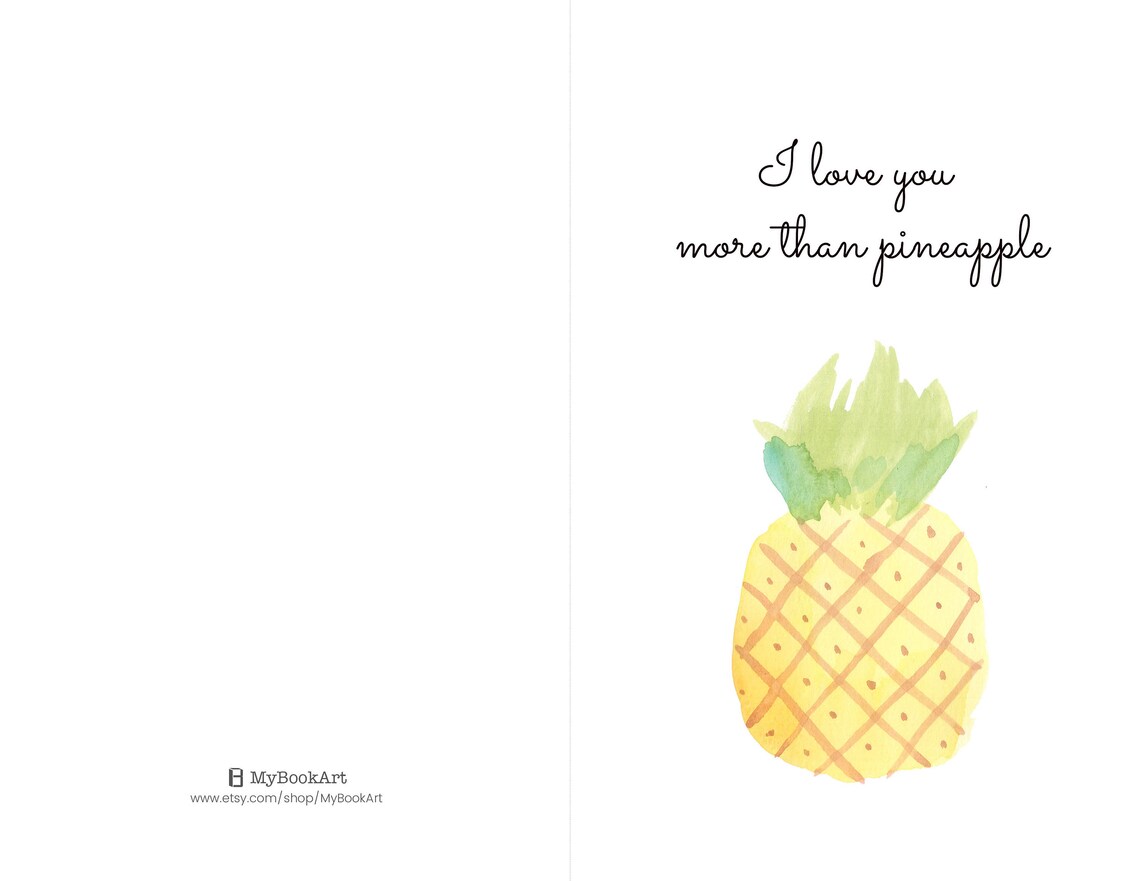 I love you
more than pineapple
MyBookArt
www.etsy.com/shop/MyBookArt